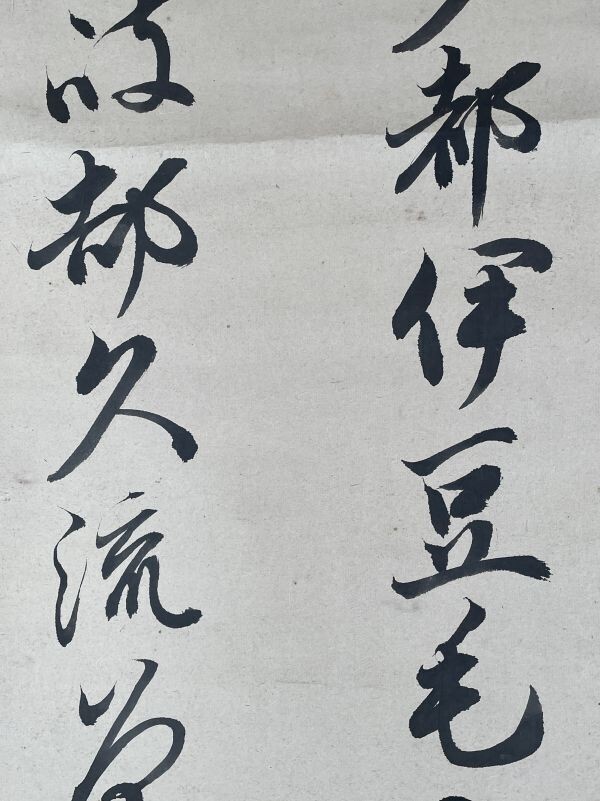 都伊豆毛
岐都久流